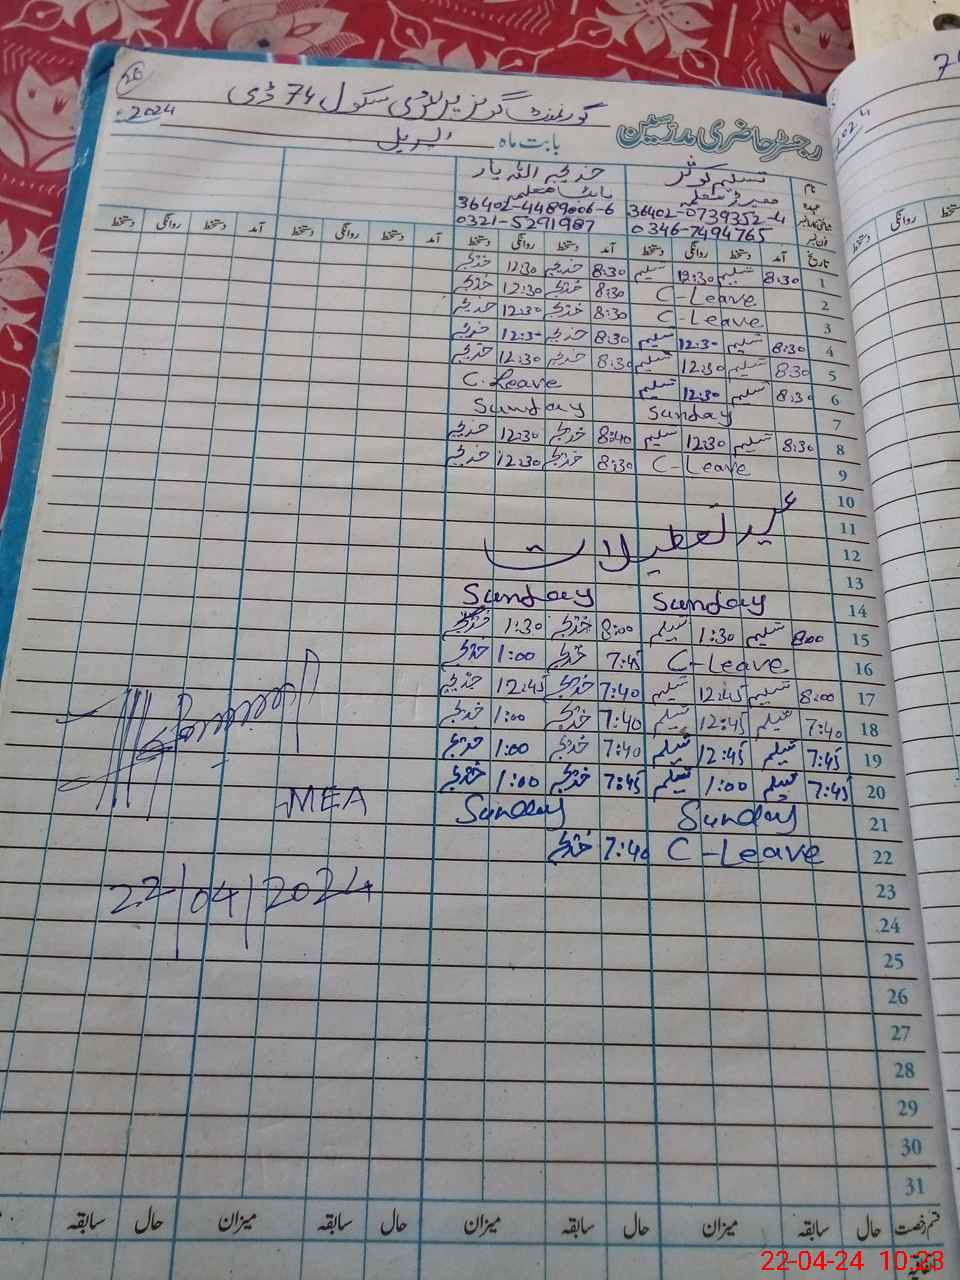 رجسٹر حاضری مدرسین گورنمنٹ گرلز پرائمری سکول 74 ڈی
بابت ماہ اپریل 2024
نام تسلیم کوثر خدیجہ اللہ یار
عہدہ معلمہ معلمہ
36402-0739352-4 36402-4489006-6
فون نمبر 0346-7494765 0321-5291987
تاریخ آمد دستخط روانگی دستخط آمد دستخط روانگی دستخط آمد دستخط روانگی دستخط آمد دستخط روانگی دستخط
1 8:30 تسلیم 12:30 تسلیم 8:30 خدیجہ 12:30 خدیجہ
2 C-Leave 8:30 خدیجہ 12:30 خدیجہ
3 C-Leave 8:30 خدیجہ 12:30 خدیجہ
4 8:30 تسلیم 12:3- تسلیم 8:30 خدیجہ 12:3- خدیجہ
5 8:30 تسلیم 12:30 تسلیم 8:30 خدیجہ 12:30 خدیجہ
6 8:30 تسلیم 12:30 تسلیم C.Leave
7 Sunday Sunday
8 8:30 تسلیم 12:30 تسلیم 8:40 خدیجہ 12:30 خدیجہ
9 C-Leave 8:30 خدیجہ 12:30 خدیجہ
10
11 عید تعطیلات
12
13
14 Sunday Sunday
15 8:00 تسلیم 1:30 تسلیم 8:00 خدیجہ 1:30 خدیجہ
16 C-Leave 7:45 خدیجہ 1:00 خدیجہ
17 8:00 تسلیم 12:45 تسلیم 7:40 خدیجہ 12:45 خدیجہ
18 7:40 تسلیم 12:45 تسلیم 7:40 خدیجہ 1:00 خدیجہ
19 7:45 تسلیم 12:45 تسلیم 7:40 خدیجہ 1:00 خدیجہ
20 7:45 تسلیم 1:00 تسلیم 7:45 خدیجہ 1:00 خدیجہ
21 Sunday Sunday
22 C-Leave 7:40 خدیجہ
MEA
22/04/2024
23
24
25
26
27
28
29
30
31
قسم رخصت حال سابقہ میزان حال سابقہ میزان حال سابقہ میزان حال سابقہ
اتفاقیہ
2024
22-04-24 10:23